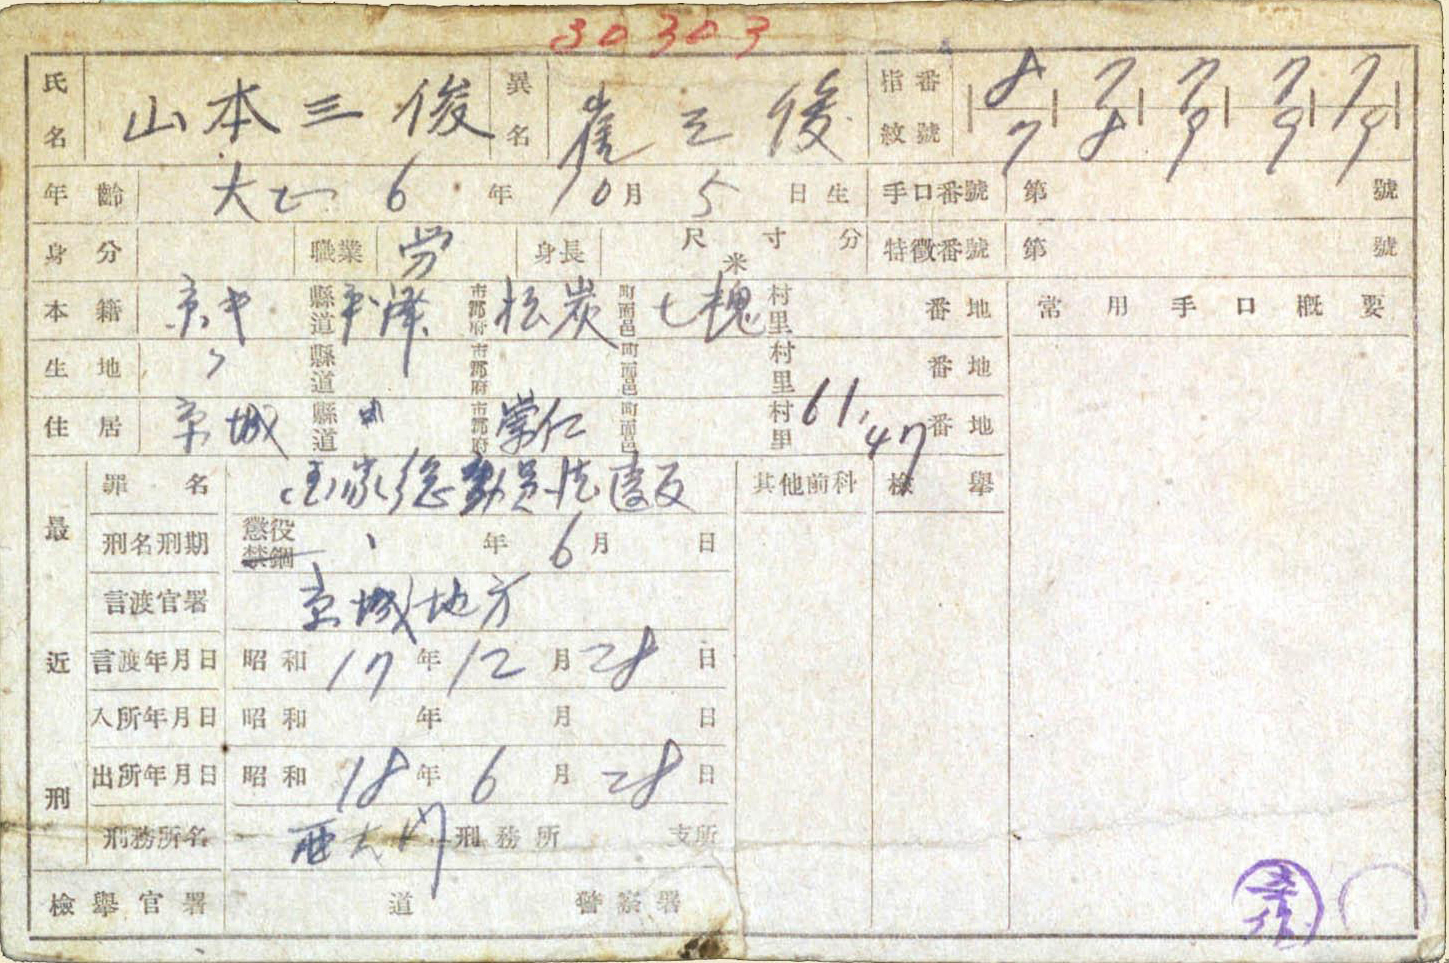 30303
氏名 山本三俊 異名 崔三俊 指紋番號 8 7 7 7 7
7 8 9 9 9
年齡 大正 6 年 10 月 5 日生 手口番號 第 號
身分 職業 労 身長 尺 寸 分 米 特徵番號 第 號
本籍 京キ 縣道 平澤 市郡府 松炭 町面邑 七槐 村里 番地 常用手口概要
生地 〃 縣道 市郡府 町面邑 村里 番地
住居 京城 縣道 市郡府 崇仁 町面邑 村里 61,47 番地
最近刑 罪名 国家總動員法違反 其他前科 檢擧
刑名刑期 懲役 禁錮 年 6 月 日
言渡官署 京城地方
言渡年月日 昭和 17 年 12 月 28 日
入所年月日 昭和 年 月 日
出所年月日 昭和 18 年 6 月 28 日
刑務所名 西大門 刑務所 支所
檢擧官署 道 警察署